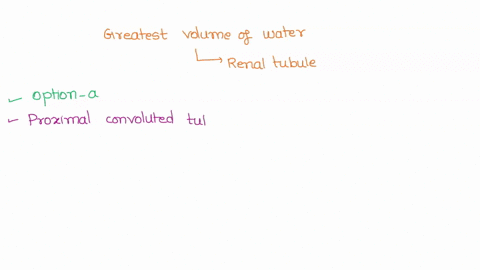 Greatest volume of water
Renal tubule
option-a
Proximal convoluted tul